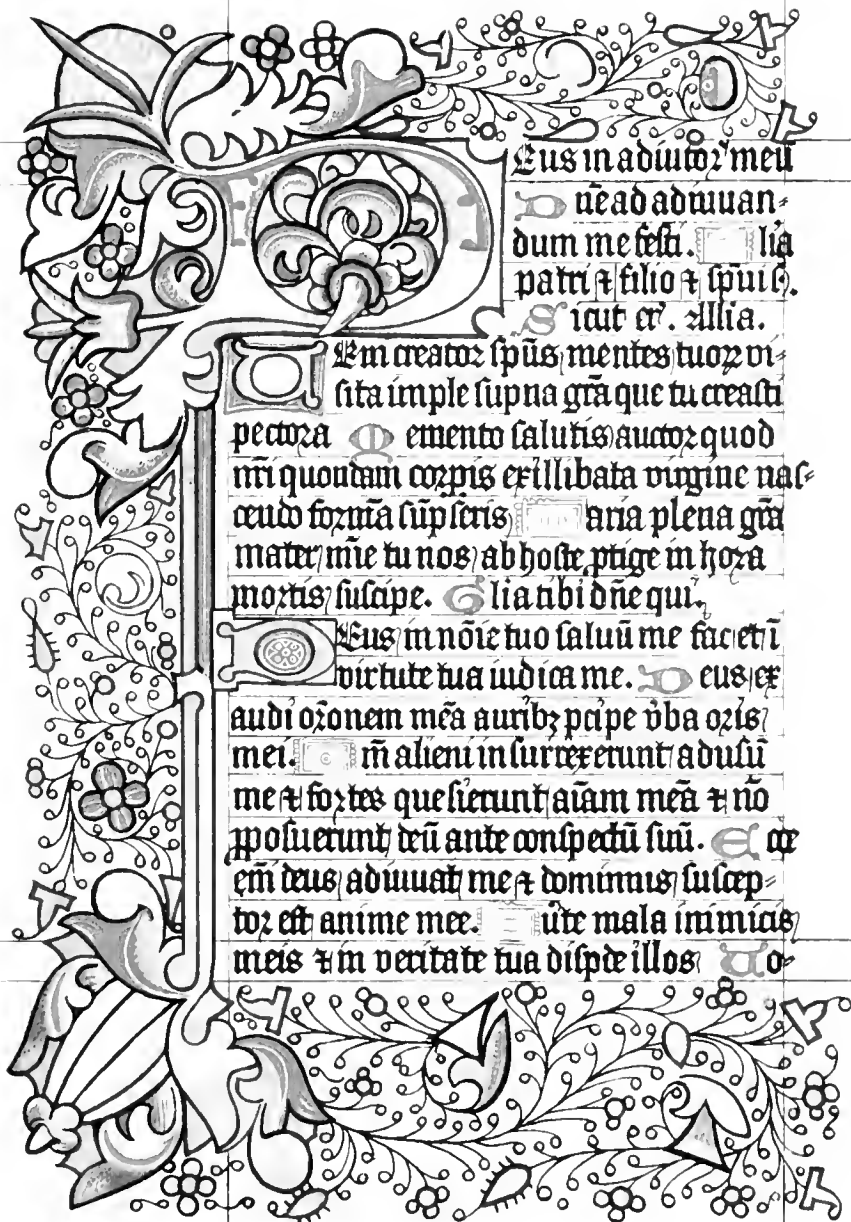 Deus in adiutor' meū
Dn̄e ad adiuuan-
dum me festi. Glia
patri ⁊ filio ⁊ spūi s.
Sicut er'. Allīa.
UEni creator spūs mentes tuoꝝ vi-
sita imple supna grā que tu creasti
pectora Memento salutis auctor quod
nr̄i quondam corpis ex illibata virgine nas-
cendo formā sūpseris Maria plena grā
mater mīe tu nos ab hoste ptige in hora
mortis suscipe. Glia tibi dn̄e qui.
DEus in nōie tuo saluū me fac et ī
virtute tua iudica me. Deus ex
audi orōnem meā auribꝫ pcipe vba oris
mei. Qm̄ alieni insurrexerunt aduersū
me ⁊ fortes quesierunt aīam meā ⁊ nō
pposuerunt deū ante conspectū suū. Ecce
em̄ deus adiuuat me ⁊ dominus suscep-
tor est anime mee. Auerte mala inimicis
meis ⁊ in veritate tua dispde illos Uo-